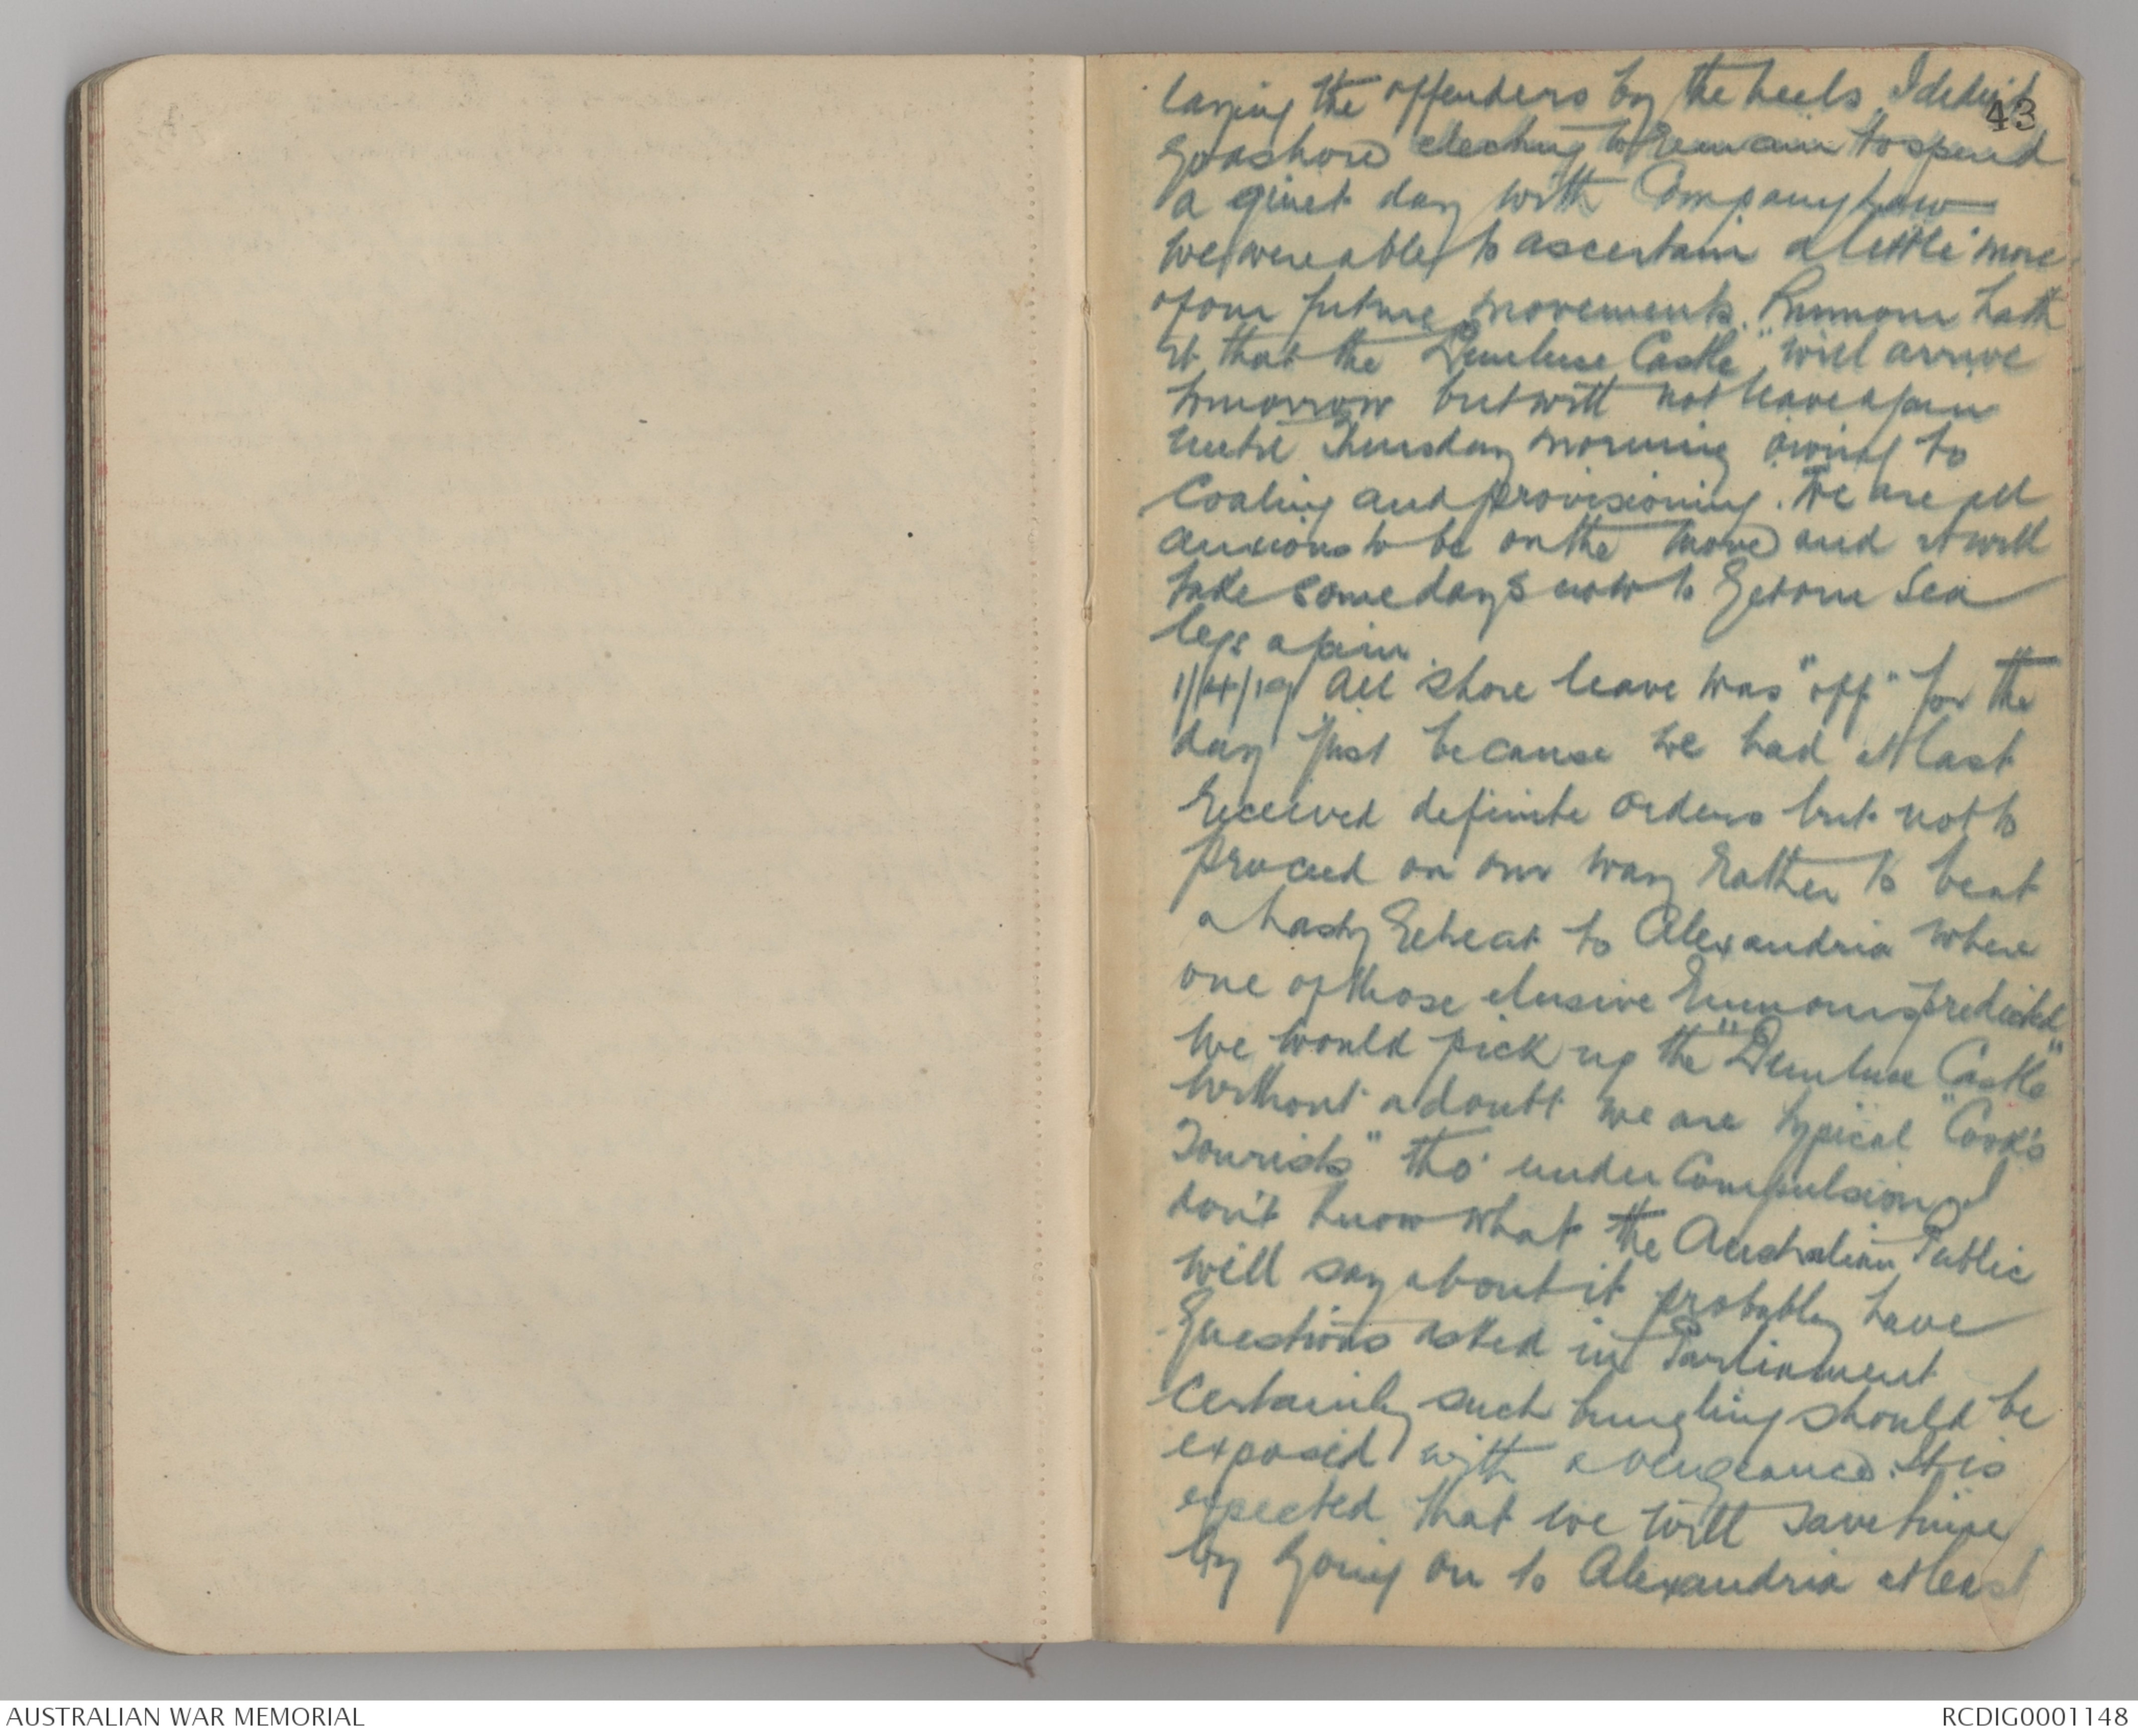 43
laying the offenders by the heels I didn't
go ashore electing to remain to spend
a quiet day with Company Law
we were able to ascertain a little more
of our future movements. Rumour hath
it that the "Dunluce Castle" will arrive
tomorrow but will not leave again
until Thursday morning owing to
Coaling and provisioning. We are all
anxious to be on the move and it will
take some days now to get our Sea
legs again.
1/4/19 All shore leave was "off" for the
day just because we had at last
received definite orders but not to
proceed on our way rather to beat
a hasty retreat to Alexandria where
one of those elusive rumours predicted
we would pick up the "Dunluce Castle"
Without a doubt we are typical "Cook's
Tourists" tho' under Compulsion I
don't know what the Australian Public
will say about it probably have
Questions asked in Parliament
Certainly such bungling should be
exposed with a vengeance. It is
expected that we will save time
by going on to Alexandria at least
AUSTRALIAN WAR MEMORIAL
RCDIG0001148